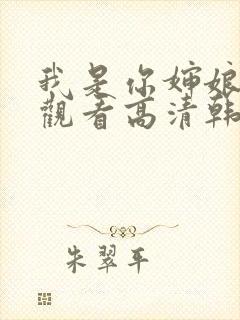 我是你婶娘
觀看高清韩
朱翠平